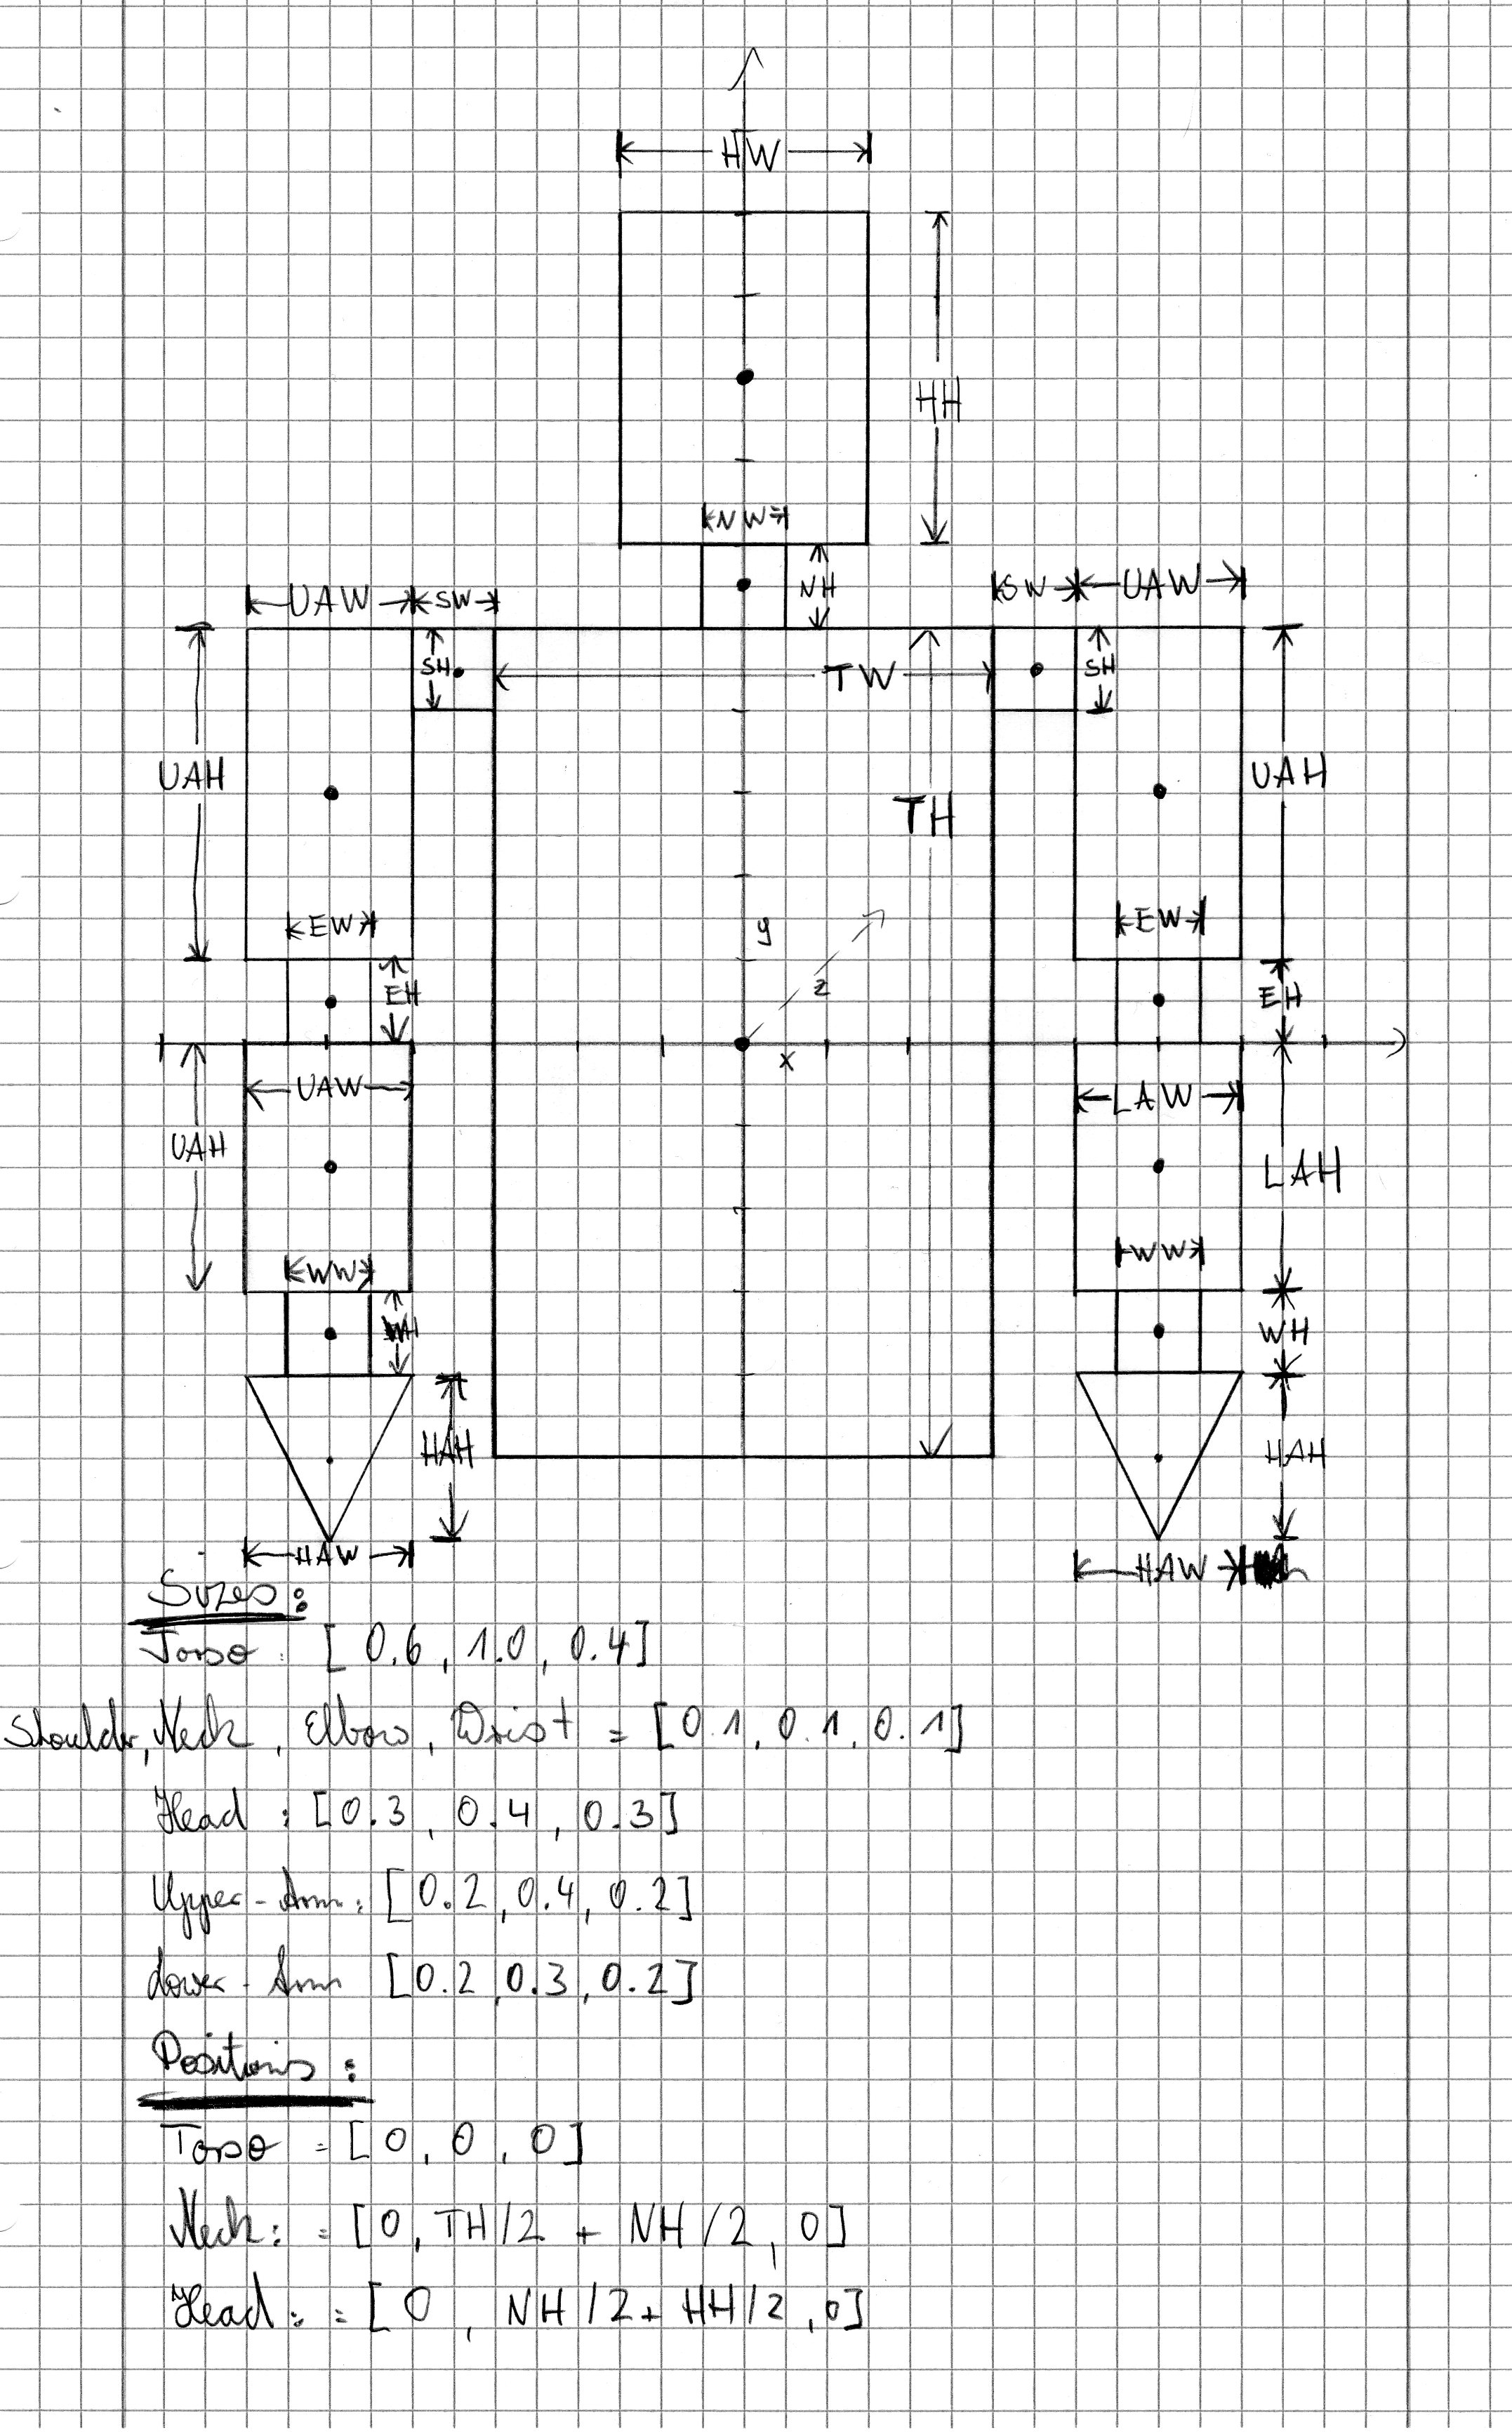 HW
HH
NW
NH
UAW SW
SW UAW
SH
TW
SH
UAH
UAH
TH
EW
EW
y
EH
z
EH
x
UAW
LAW
UAH
LAH
WW
WW
WH
HAH
HAH
HAW
HAW
Sizes:
Torso : [0.6, 1.0, 0.4]
Shoulder, Neck, Elbow, Wrist = [0.1, 0.1, 0.1]
Head : [0.3, 0.4, 0.3]
Upper-Arm: [0.2, 0.4, 0.2]
Lower-Arm [0.2, 0.3, 0.2]
Positions:
Torso = [0, 0, 0]
Neck: = [0, TH/2 + NH/2, 0]
Head: = [0, NH/2 + HH/2, 0]